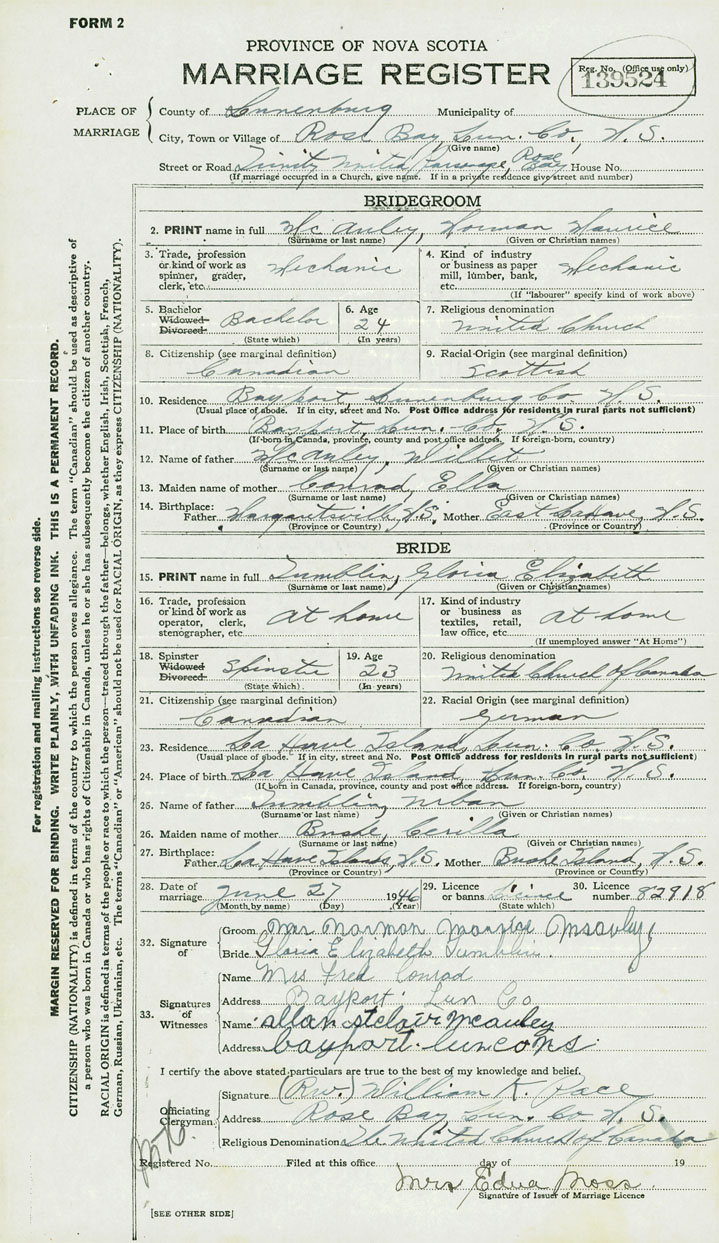 FORM 2
PROVINCE OF NOVA SCOTIA
MARRIAGE REGISTER
Reg. No. (Office use only)
139524
PLACE OF MARRIAGE
County of Lunenburg Municipality of
City, Town or Village of Rose Bay, Lun. Co., N. S.
(Give name)
Street or Road Trinity United Parsonage, Rose Bay House No.
(If marriage occurred in a Church, give name. If in a private residence give street and number)
BRIDEGROOM
2. PRINT name in full McAuley, Norman Maurice
(Surname or last name) (Given or Christian names)
3. Trade, profession or kind of work as spinner, grader, clerk, etc. Mechanic
4. Kind of industry or business as paper mill, lumber, bank, etc. Mechanic
(If "labourer" specify kind of work above)
5. Bachelor Widowed Divorced Bachelor
(State which)
6. Age 24
(In years)
7. Religious denomination
United Church
8. Citizenship (see marginal definition)
Canadian
9. Racial Origin (see marginal definition)
Scottish
10. Residence Bayport, Lunenburg Co. N. S.
(Usual place of abode. If in city, street and No. Post Office address for residents in rural parts not sufficient)
11. Place of birth Bayport, Lun. Co. N. S.
(If born in Canada, province, county and post office address. If foreign-born, country)
12. Name of father McAuley, Willet
(Surname or last name) (Given or Christian names)
13. Maiden name of mother Conrad, Ella
(Surname or last name) (Given or Christian names)
14. Birthplace: Father Margaretsville, N.S. Mother East LaHave, N.S.
(Province or Country) (Province or Country)
BRIDE
15. PRINT name in full Tumblin, Gloria Elizabeth
(Surname or last name) (Given or Christian names)
16. Trade, profession or kind of work as operator, clerk, stenographer, etc. At home
17. Kind of industry or business as textiles, retail, law office, etc. At home
(If unemployed answer "At Home")
18. Spinster Widowed Divorced Spinster
(State which)
19. Age 23
(In years)
20. Religious denomination
United Church of Canada
21. Citizenship (see marginal definition)
Canadian
22. Racial Origin (see marginal definition)
German
23. Residence La Have Island, Lun. Co. N. S.
(Usual place of abode. If in city, street and No. Post Office address for residents in rural parts not sufficient)
24. Place of birth La Have Island, Lun. Co. N. S.
(If born in Canada, province, county and post office address. If foreign-born, country)
25. Name of father Tumblin, Urban
(Surname or last name) (Given or Christian names)
26. Maiden name of mother Bushe, Cerilla
(Surname or last name) (Given or Christian names)
27. Birthplace: Father La Have Islands, N.S. Mother Bushe Island, N. S.
(Province or Country) (Province or Country)
28. Date of marriage June 27 1946
(Month by name) (Day) (Year)
29. Licence or banns Licence
(State which)
30. Licence number 82918
32. Signature of
Groom Mr Norman Maurice McAuley
Bride Gloria Elizabeth Tumblin
33. Signatures of Witnesses
Name Mrs Fred Conrad
Address Bayport Lun Co
Name allan stclair mcauley
Address bayport lun co ns
I certify the above stated particulars are true to the best of my knowledge and belief.
Officiating Clergyman.
Signature (Rev.) William K. Pace
Address Rose Bay, Lun. Co N. S.
Religious Denomination The United Church of Canada
Registered No. Filed at this office day of 19
Mrs Edna Moss
Signature of Issuer of Marriage Licence
[SEE OTHER SIDE]
For registration and mailing instructions see reverse side.
MARGIN RESERVED FOR BINDING. WRITE PLAINLY, WITH UNFADING INK. THIS IS A PERMANENT RECORD.
CITIZENSHIP (NATIONALITY) is defined in terms of the country to which the person owes allegiance. The term "Canadian" should be used as descriptive of
a person who was born in Canada or who has rights of Citizenship in Canada, unless he or she has subsequently become the citizen of another country.
RACIAL ORIGIN is defined in terms of the people or race to which the person—traced through the father—belongs, whether English, Irish, Scottish, French,
German, Russian, Ukrainian, etc. The terms "Canadian" or "American" should not be used for RACIAL ORIGIN, as they express CITIZENSHIP (NATIONALITY).